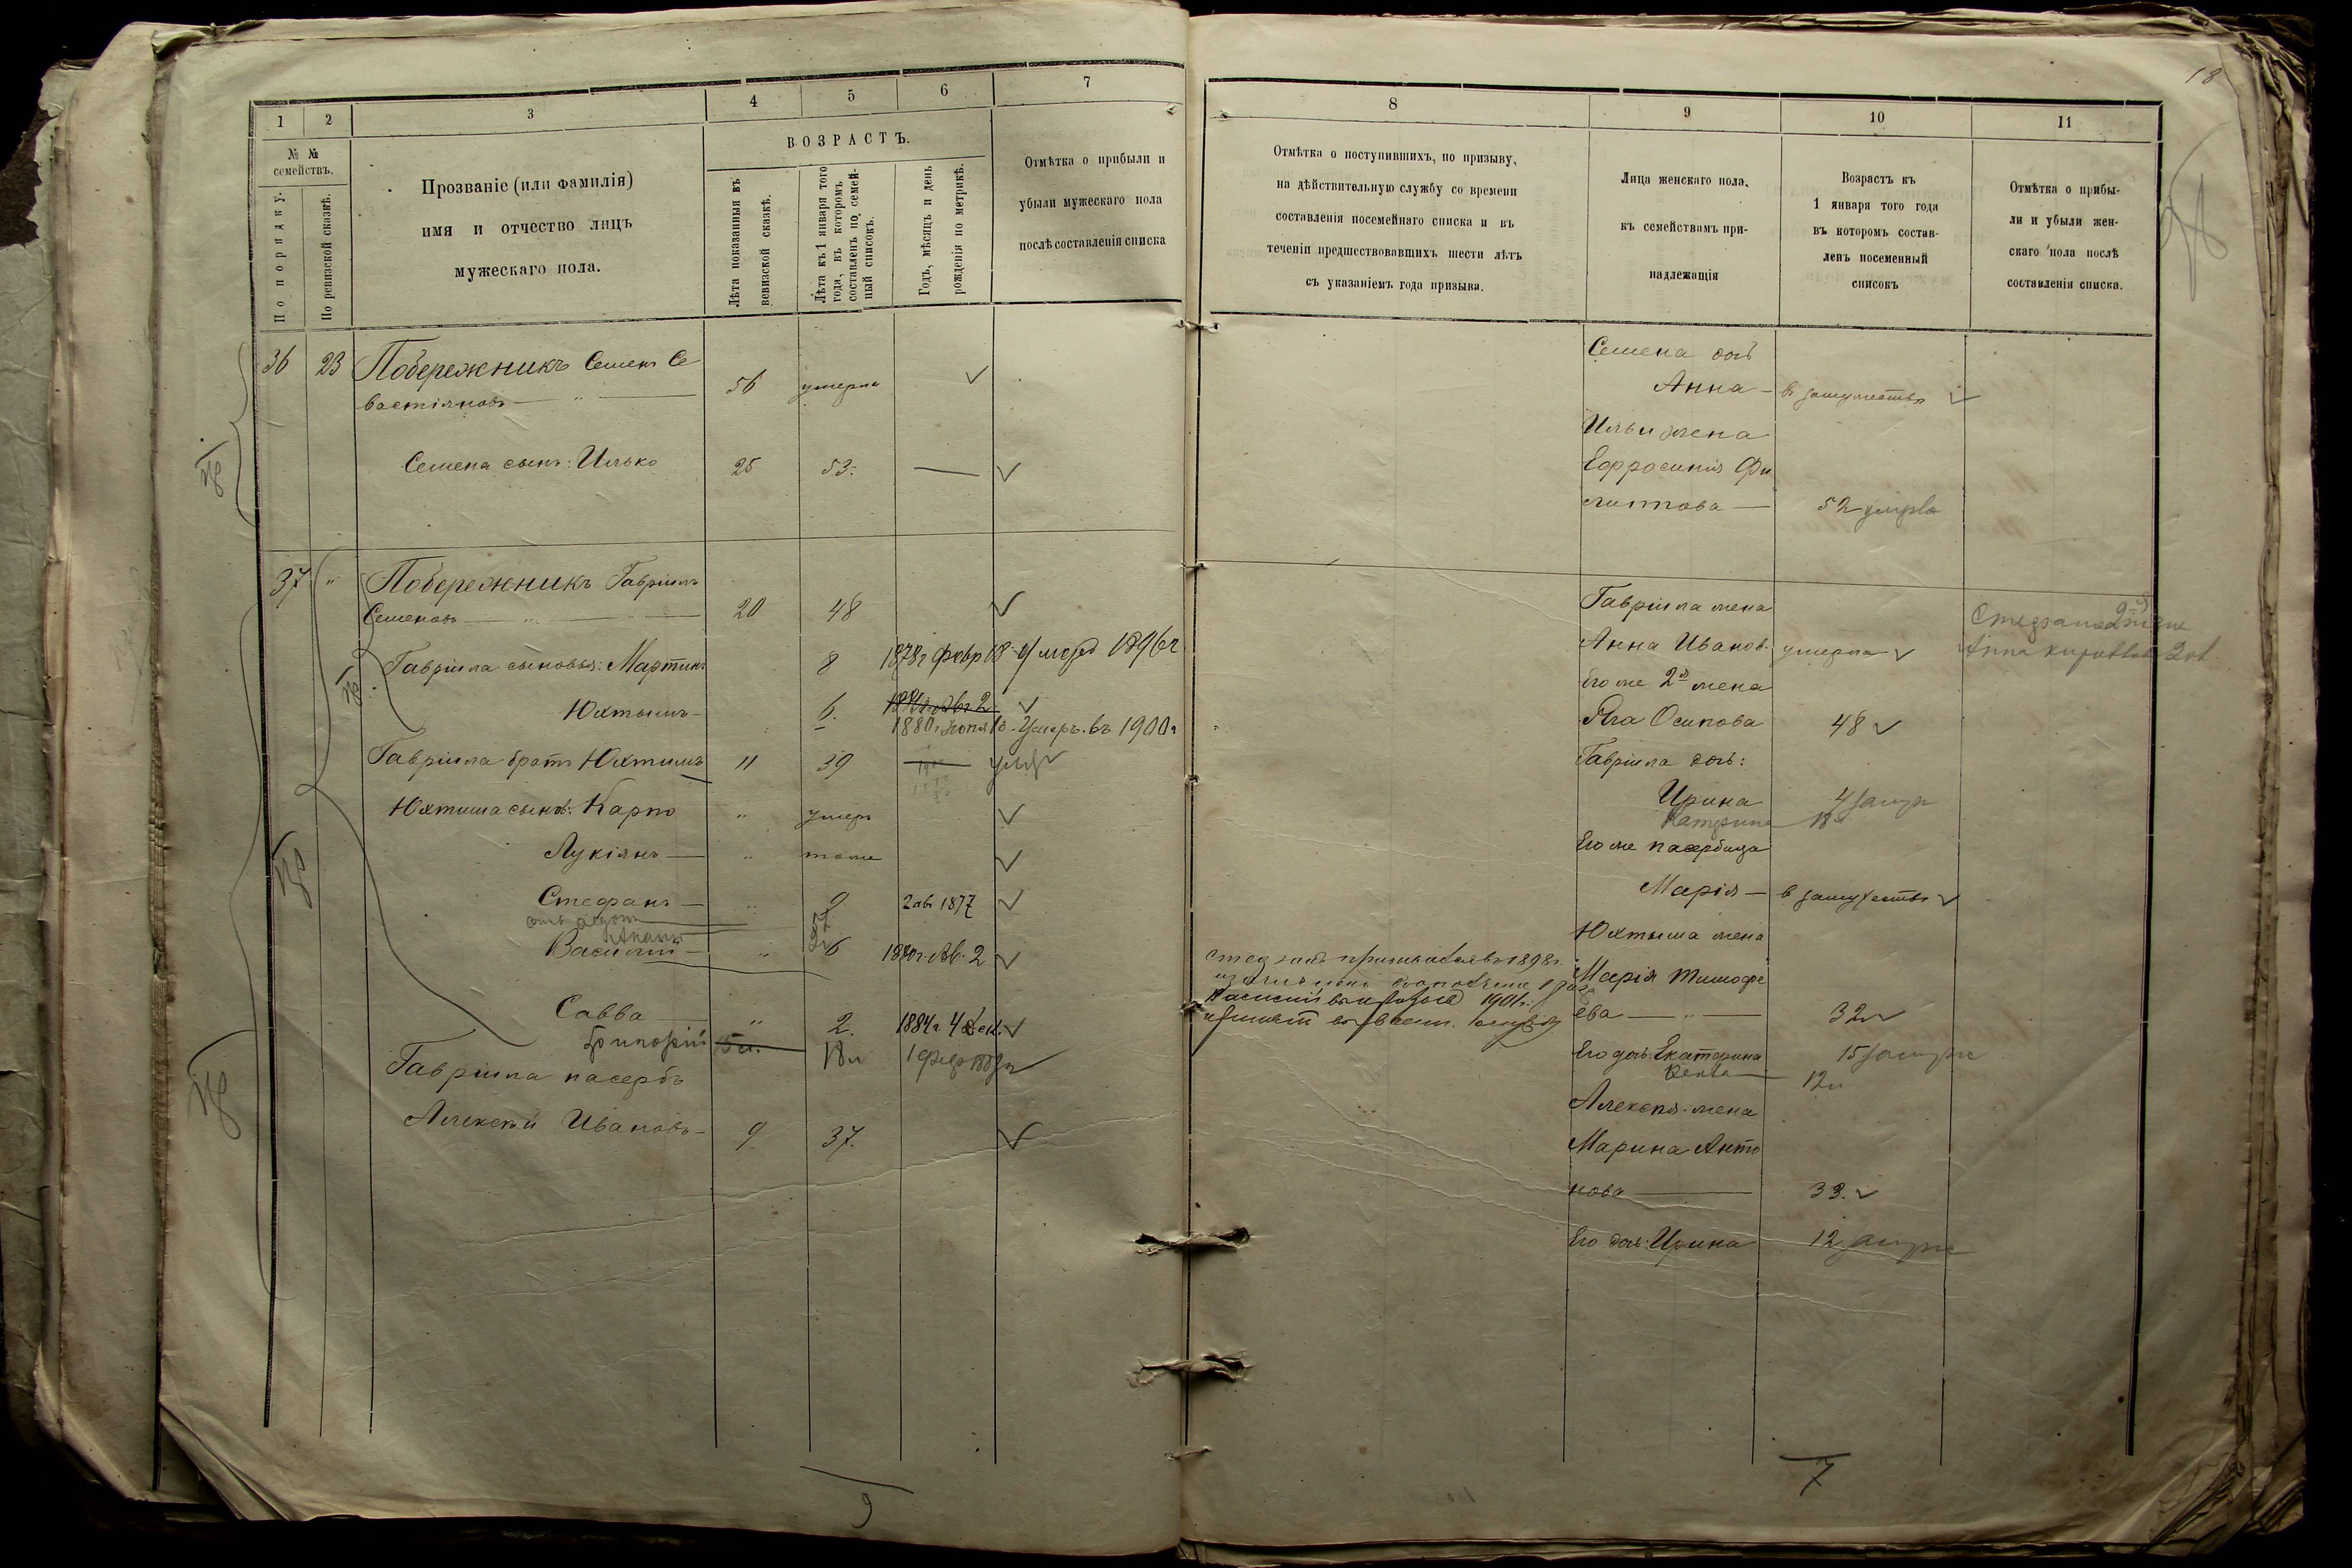 1
2
3
4
5
6
7
№ №
семействъ.
По порядку.
По ревизской сказкѣ.
Прозваніе (или фамилія)
имя и отчество лицъ
мужескаго пола.
ВОЗРАСТЪ.
Лѣта показанныя въ
вевизской сказкѣ.
Лѣта къ 1 января того
года, въ которомъ
составленъ по семей-
ный списокъ.
Годъ, мѣсяцъ и день
рожденія по метрикѣ.
Отмѣтка о прибыли и
убыли мужескаго пола
послѣ составленія списка
36 23 Побережникъ Семенъ Се
вастіяновъ — " — 56 умерли
Семена сынъ: Илько 25 53. —
37 " Побережникъ Гавріилъ
Семеновъ — " — 20 48
Гавріила сыновья: Мартинъ 8 1878 г февр 18 1896 г
Юхтымъ — 6.
1880 г Іюня 18 Умеръ въ 1900 г
Гавріила братъ Юхтимъ 11 39 —
Юхтима сынов: Карпо " умеръ
Лукіянъ — " тоже
Стефанъ — " 9 2 ав 1877
Василій — " 6 Ав. 2
Савва — " 2. 1884 г 4 Дек.
Григорій 18 л
Гавріила пасербъ
Алексѣй Ивановъ — 9 37.
9
18
8
9
10
11
Отмѣтка о поступившихъ, по призыву,
на дѣйствительную службу со времени
составленія посемейнаго списка и въ
теченіи предшествовавшихъ шести лѣтъ
съ указаніемъ года призыва.
Лица женскаго пола,
къ семействамъ при-
надлежащія
Возрастъ къ
1 января того года
въ которомъ состав-
ленъ посеменный
списокъ
Отмѣтка о прибы-
ли и убыли жен-
скаго пола послѣ
составленія списка.
Семена доч
Анна — в замужествѣ
Ильи жена
Ефросинія Фи
липпова — 52
Гавріила жена
Анна Иванов. умерла
Его же 2я жена
Яга Осипова 48
Гавріила доч:
Ирина 4
Катерина — 18
Его же пасербица
Марія — в замужествѣ
Юхтыма жена
Марія Тимофе
ева — " — 32
1898 г.
Василій 1901 г.
Его доч: Екатерина 15
12 л
Алексѣя жена
Марина Анто
нова — 33.
Его доч: Ирина 12
7